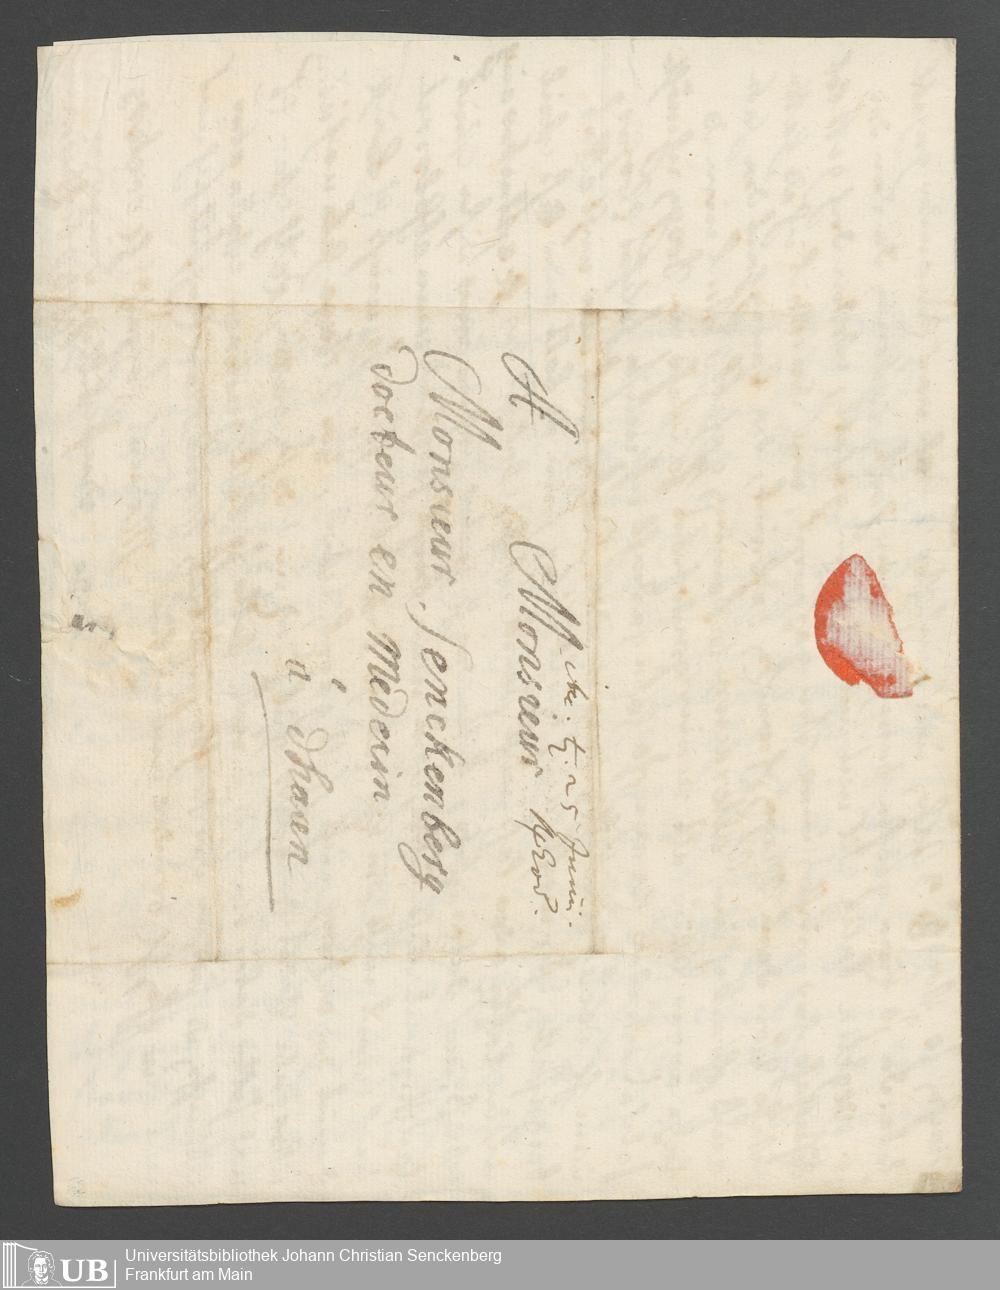 A Monsieur
Monsieur. Senckenberg
docteur en Medecin
á dhaen
25 Junii.
Universitätsbibliothek Johann Christian Senckenberg
Frankfurt am Main
UB